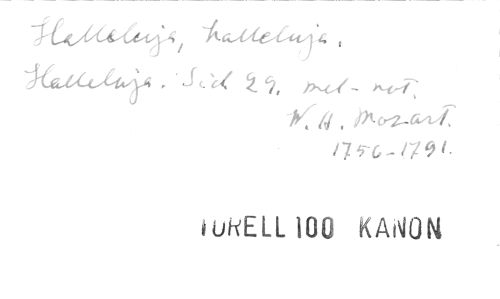 Halleluja, halleluja.
Halleluja. Sid 29. mel-not.
W. A. Mozart.
1756-1791.
TORELL 100 KANON